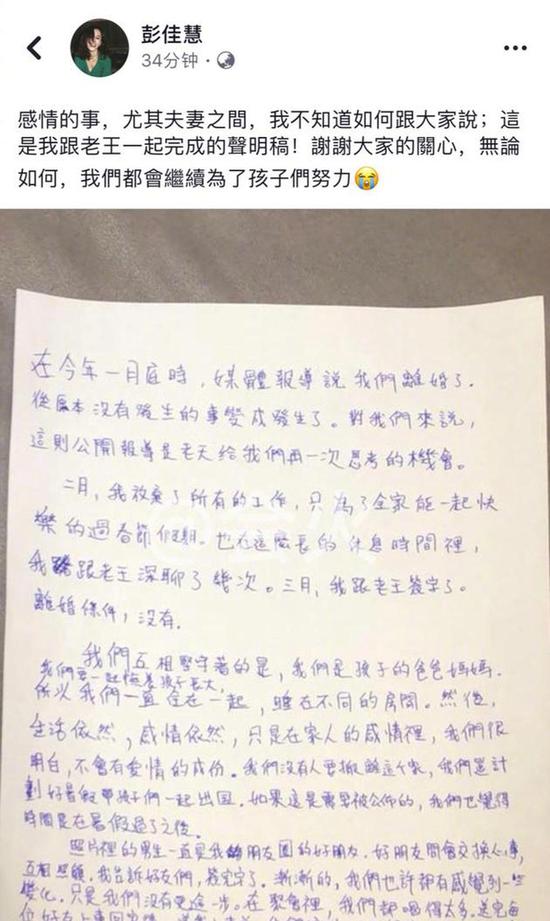 彭佳慧
34分钟
感情的事，尤其夫妻之間，我不知道如何跟大家說；這
是我跟老王一起完成的聲明稿！謝謝大家的關心，無論
如何，我們都會繼續為了孩子們努力😭
在今年一月底時，媒體報導說我們離婚了.
從原本沒有發生的事變成發生了。對我們來說，
這則公開報導是老天給我們再一次思考的機會。
二月，我放棄了所有的工作，只為了全家能一起快
樂的過春節假期。也在這麼長的休息時間裡，
我跟老王深聊了幾次。三月，我跟老王簽字了。
離婚條件，沒有.
我們互相堅守著的是，我們是孩子的爸爸媽媽.
我們要一起陪著孩子長大，
所以我們一直住在一起，睡在不同的房間。然後，
生活依然，感情依然，只是在家人的感情裡，我們很
明白，不會有愛情的成份。我們沒有人要搬離這個家，我們是計
劃好暑假帶孩子們一起出國。如果這是需要被公佈的，我們也覺得
時間是在暑假過了之後。
照片裡的男生一直是我朋友圈的好朋友. 好朋友間會交換心事，
互相照顧。我告訴好友們，簽字了。漸漸的，我們也許都有感覺到一些
變化. 只是我們沒有更進一步。在聚會裡，我們都喝得太多，